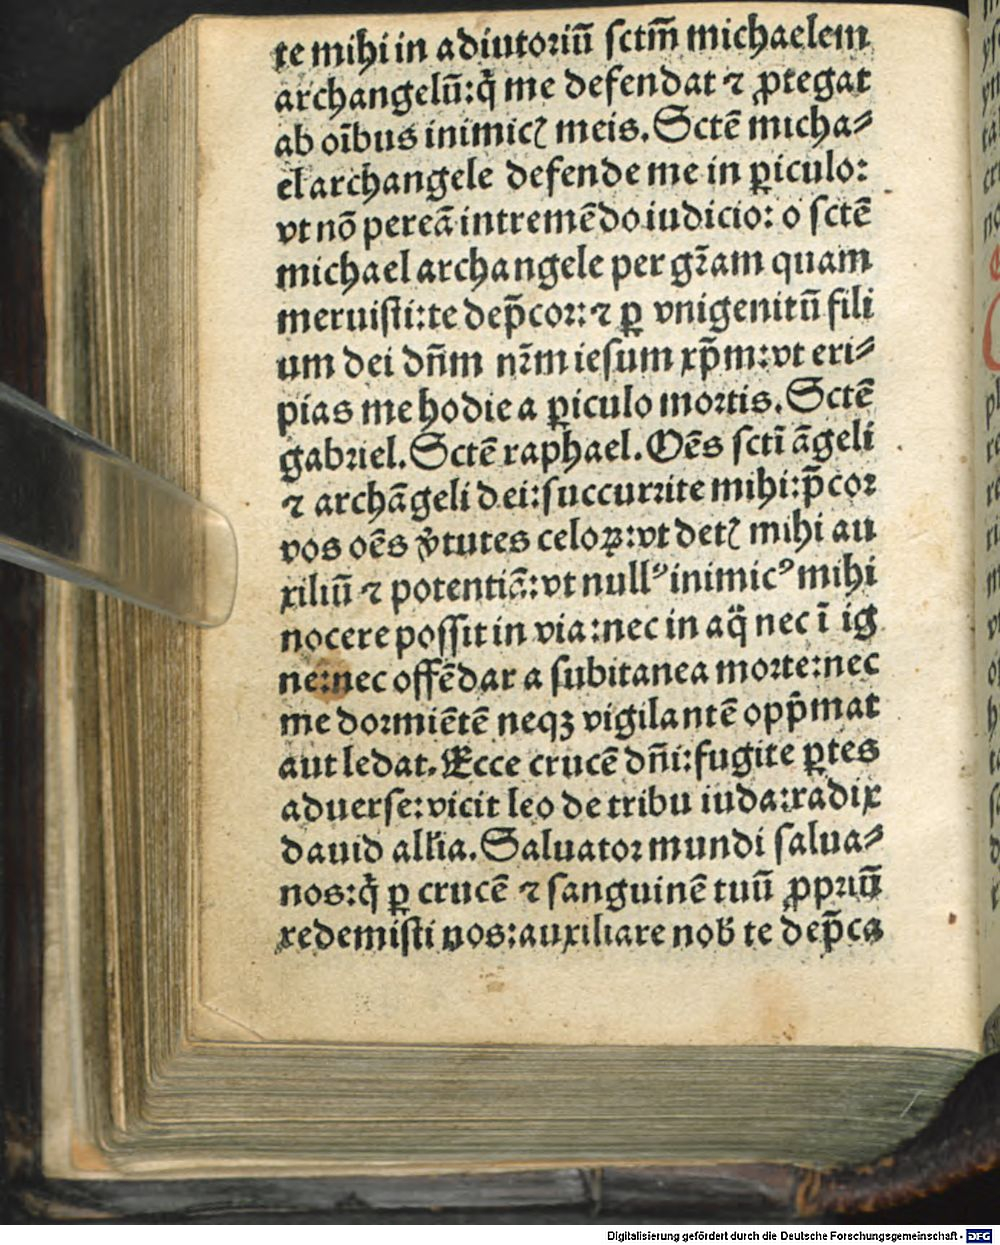 te mihi in adiutoriū sctm̄ michaelem
archangelū: q̇ me defendat ⁊ ꝓtegat
ab oībus inimicꝭ meis. Sctē micha⸗
el archangele defende me in ꝑiculo:
vt nō pereā in tremēdo iudicio: o sctē
michael archangele per gr̄am quam
meruisti: te dep̄cor: ⁊ ꝑ vnigenitū fili
um dei dn̄m nr̄m iesum xp̄m: vt eri⸗
pias me hodie a ꝑiculo mortis. Sctē
gabriel. Sctē raphael. Oēs sctī āgeli
⁊ archāgeli dei: succurrite mihi: p̄cor
vos oēs v̓tutes celoꝝ: vt detꝭ mihi au
xiliū ⁊ potentiā: vt nullꝰ inimicꝰ mihi
nocere possit in via: nec in aq̄ nec ī ig
ne: nec offēdar a subitanea morte: nec
me dormiētē neqꝫ vigilantē opp̄mat
aut ledat. Ecce crucē dn̄i: fugite ꝑtes
aduerse: vicit leo de tribu iuda: radix
dauid all̄ia. Saluator mundi salua⸗
nos: q̇ ꝑ crucē ⁊ sanguinē tuū ꝓpriū
redemisti nos: auxiliare nob̄ te dep̄ca
Digitalisierung gefördert durch die Deutsche Forschungsgemeinschaft - DFG